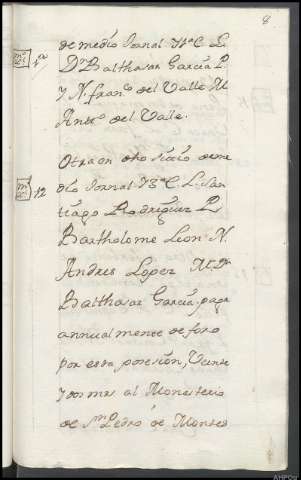 8
de medio Jornal 3ª C. L.
Dn Balthasar Garcia P.
y N. franco del Valle M.
Anto del Valle.
Otra en dho sitio de me
dio Jornal 3ª C. L. San
tiago Rodriguez P.
Bartholome Leon N.
Andres Lopez M. Dn
Balthasar Garcia. paga
annualmente de foro
por esta posesion, Veinte
y dos mrs al Monasterio
de Sn Pedro de Montes
12